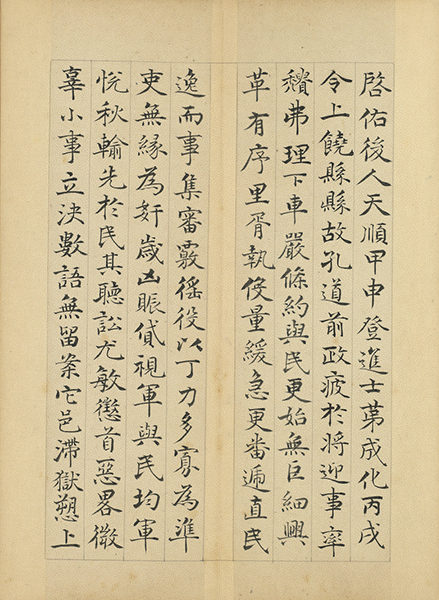 啓佑後人天順甲申登進士第成化丙戌
令上饒縣縣故孔道前政疲於將迎事率
弗理下車嚴條約與民更始無巨細興
革有序里胥執役量緩急更番遞直民
逸而事集審覈徭役以丁力多寡為準
吏無緣為奸歲凶賑貸視軍與民均軍
悅秋輸先於民其聽訟尤敏懲首惡畧微
辜小事立決數語無留案它邑滯獄愬上